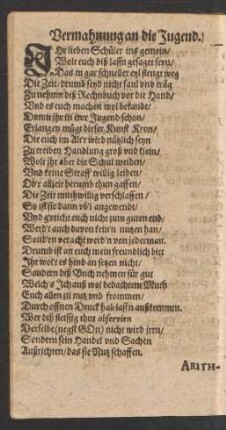 Vermahnung an die Jugend.
Ihr lieben Schüler ins gemein/
Wolt euch diß lassn gesaget seyn/
Das in gar schneller eyl fleugt weg
Die Zeit/ drumb seyd nicht faul vnd träg
Zu nehmn diß Rechnbuch vor die Hand/
Vnd es euch machen wol bekande/
Damit ihr in ewr Jugend schon/
Erlangen mügt dieser Kunst Kron/
Die euch im Alter wird nützlich seyn
Zu treiben Handlung groß vnd klein/
Wolt jhr aber die Schul meiden/
Vnd keine Straff willig leiden/
Od'r allzeit herumb thun gaffen/
Die Zeit muthwillig verschlaffen/
So ist sie dann vb'l angewendt/
Vnd g'reicht euch nicht zum guten end/
Werd't auch davon kein'n nutzen han/
Sond'rn veracht werd'n von jederman.
Drumb ist an euch mein freundlich bitt
Ihr wolt es hind an setzen nicht/
Sondern diß Buch nehmen für gut
Welch's Ich auß wol bedachtem Muth
Euch allen zu nutz vnd frommen/
Durch offnen Druck hab lassn außkommen.
Wer diß fleissig thut observirn
Derselbe (negst GOtt) nicht wird jrrn/
Sondern sein Handel vnd Sachen
Außrichten/ das sie Nutz schaffen.
ARITH-